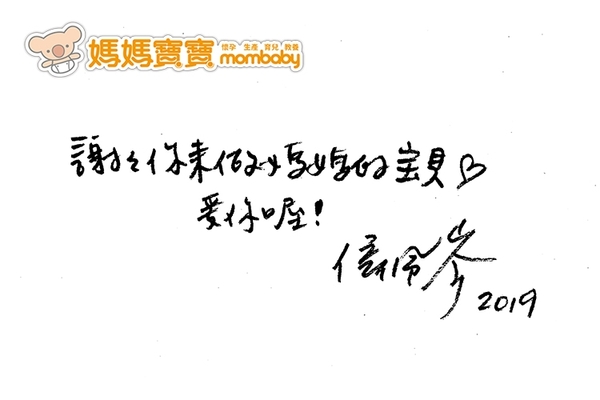 媽媽寶寶
懷孕 生產 育兒 教養
mombaby
謝謝你來做媽媽的宝貝
愛你喔!
佩岑 2019